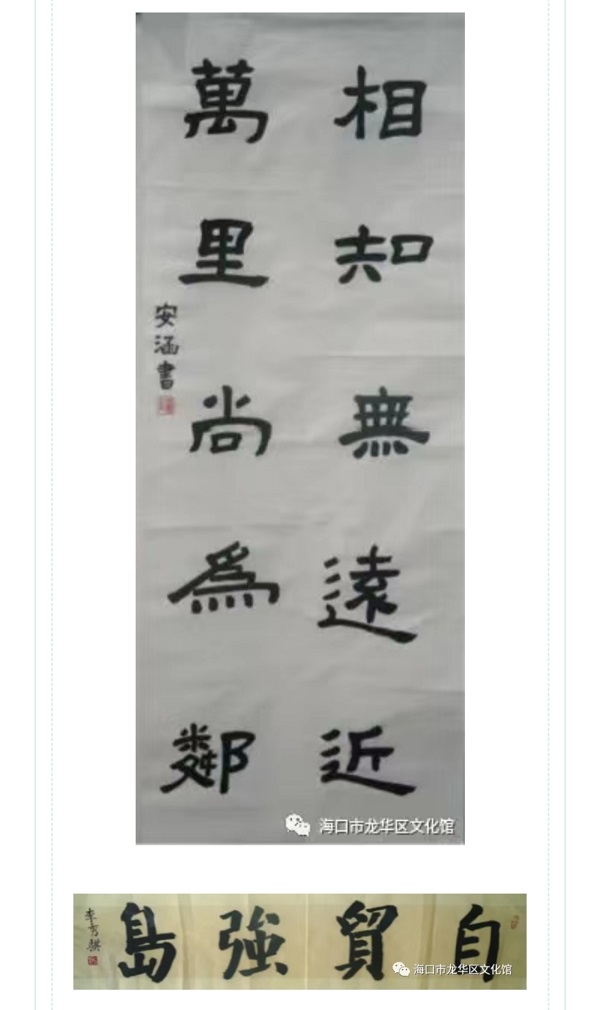 相知無遠近
萬里尚為鄰
安涵書
海口市龙华区文化馆
自貿強島
海口市龙华区文化馆